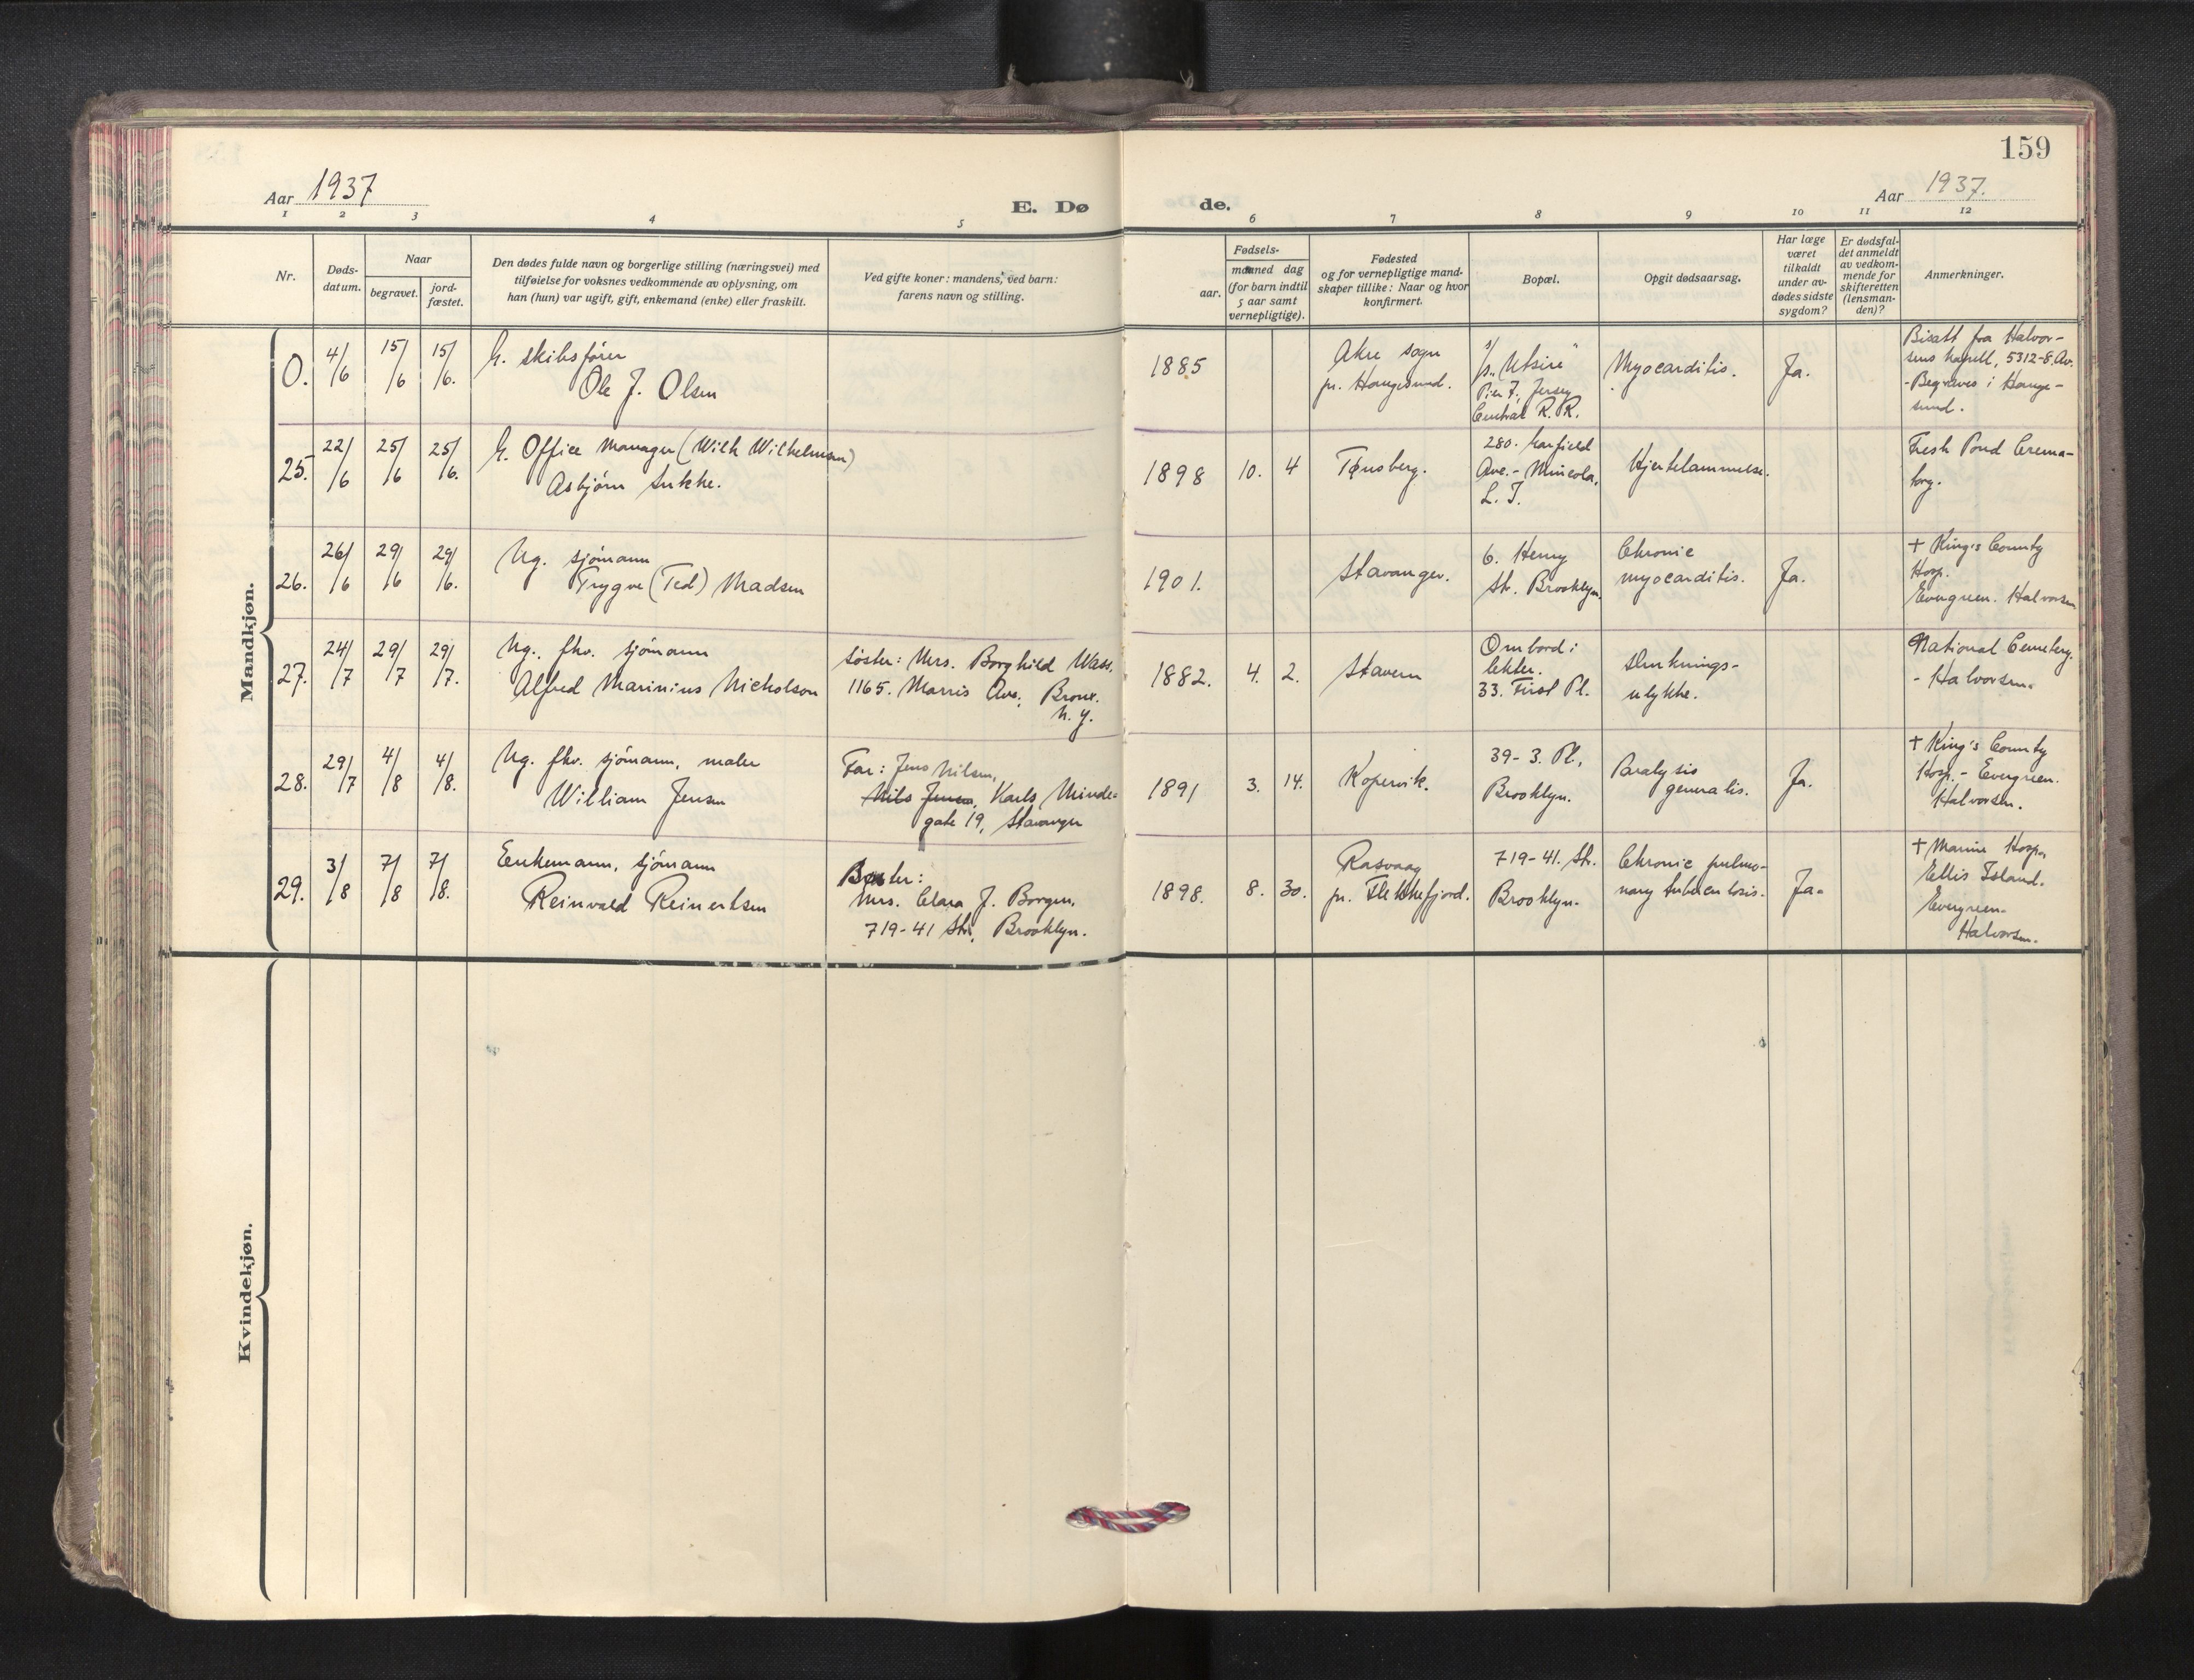 159
Aar 1937
E. Dø
de.
Aar 1937.
1 2 3 4 5 6 7 8 9 10 11 12
Nr.
Døds-
datum.
Naar
begravet.
jord-
fæstet.
Den dødes fulde navn og borgerlige stilling (næringsvei) med
tilføielse for voksnes vedkommende av oplysning, om
han (hun) var ugift, gift, enkemand (enke) eller fraskilt.
Ved gifte koner: mandens, ved barn:
farens navn og stilling.
Fødsels-
aar.
maaned dag
(for barn indtil
5 aar samt
vernepligtige).
Fødested
og for vernepligtige mand-
skaper tillike: Naar og hvor
konfirmert.
Bopæl.
Opgit dødsaarsag.
Har læge
været
tilkaldt
under av-
dødes sidste
sygdom?
Er dødsfal-
det anmeldt
av vedkom-
mende for
skifteretten
(lensman-
den)?
Anmerkninger.
Mandkjøn.
0. 4/6 15/6 15/6.
G. skibsfører
Ole J. Olsen
1885
Akre sogn
pr. Haugesund.
s/s. "Utsire"
Pier 7, Jersey
Central R. R.
Myocarditis.
Ja.
Bisatt fra Halvor-
sens kapell, 5312-8. Av.
- Begraves i Hauge-
sund.
25. 22/6 25/6 25/6.
G. Office Manager (Wilh Wilhelmsen)
Asbjørn Sukke.
1898 10. 4
Tønsberg.
280. Garfield
Ave. - Mineola,
L. I.
Hjertelammelse.
Fresh Pond Crema-
tory.
26. 26/6 29/6 29/6.
Ug. sjømann
Trygve (Ted) Madsen
1901.
Stavanger.
6. Henry
Str. Brooklyn.
Chronic
myocarditis.
Ja.
+ King's County
Hosp.
Evergreen. Halvorsen
27. 24/7 29/7 29/7.
Ug. fhv. sjømann
Alfred Marinius Nicholson
Søster: Mrs. Borghild Wass,
1165. Morris Ave, Bronx.
N. Y.
1882. 4. 2.
Stavern
Ombord i
lekter.
33. First Pl.
Druknings-
ulykke.
National Cemetery.
- Halvorsen.
28. 29/7 4/8 4/8.
Ug. fhv. sjømann, maler
William Jensen
Far: Jens Nilsen,
Nils Jensen, Karls Minde-
gate 19, Stavanger
1891 3. 14.
Kopervik.
39 - 3. Pl,
Brooklyn.
Paralysis
generalis.
Ja.
+ King's County
Hosp. - Evergreen.
Halvorsen.
29. 3/8 7/8 7/8.
Enkemann, sjømann
Reinvald Reinertsen
Mrs. Clara J. Borgen,
719-41 Str, Brooklyn.
1898. 8. 30.
Rasvaag
pr. Flekkefjord.
719-41. Str.
Brooklyn.
Chronic pulmo-
nary tuberculosis.
Ja.
+ Marine Hosp,
Ellis Island.
Evergreen.
Halvorsen.
Kvindekjøn.